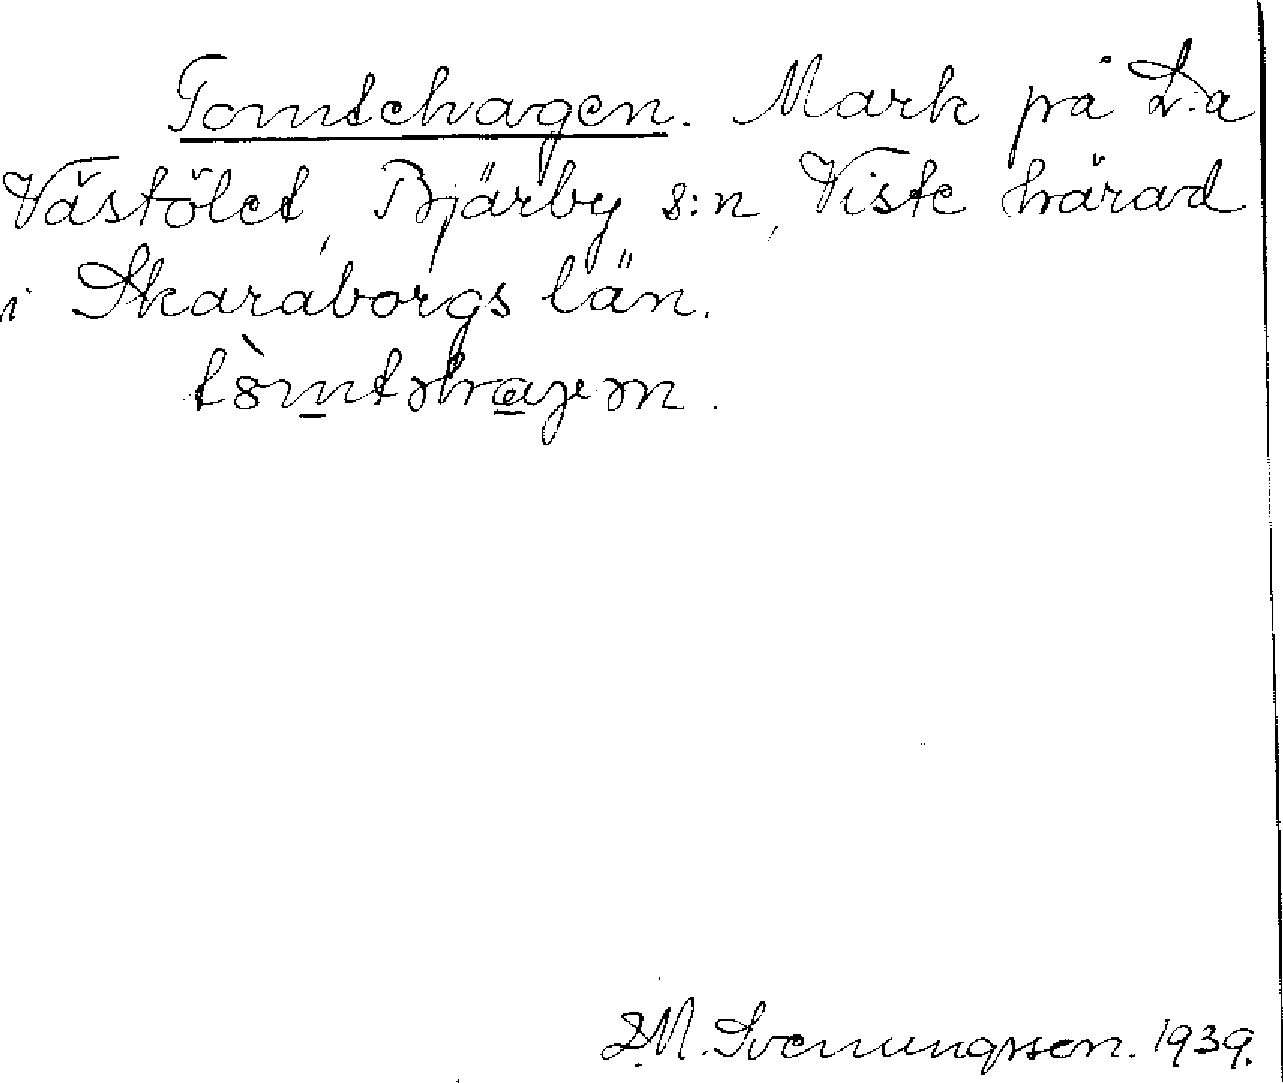 Tomtehagen. Mark på L:a
Västölet, Bjärby s:n, Viste härad
i Skaraborgs län.
tòmtəhagən.
Svenungsson. 1939.